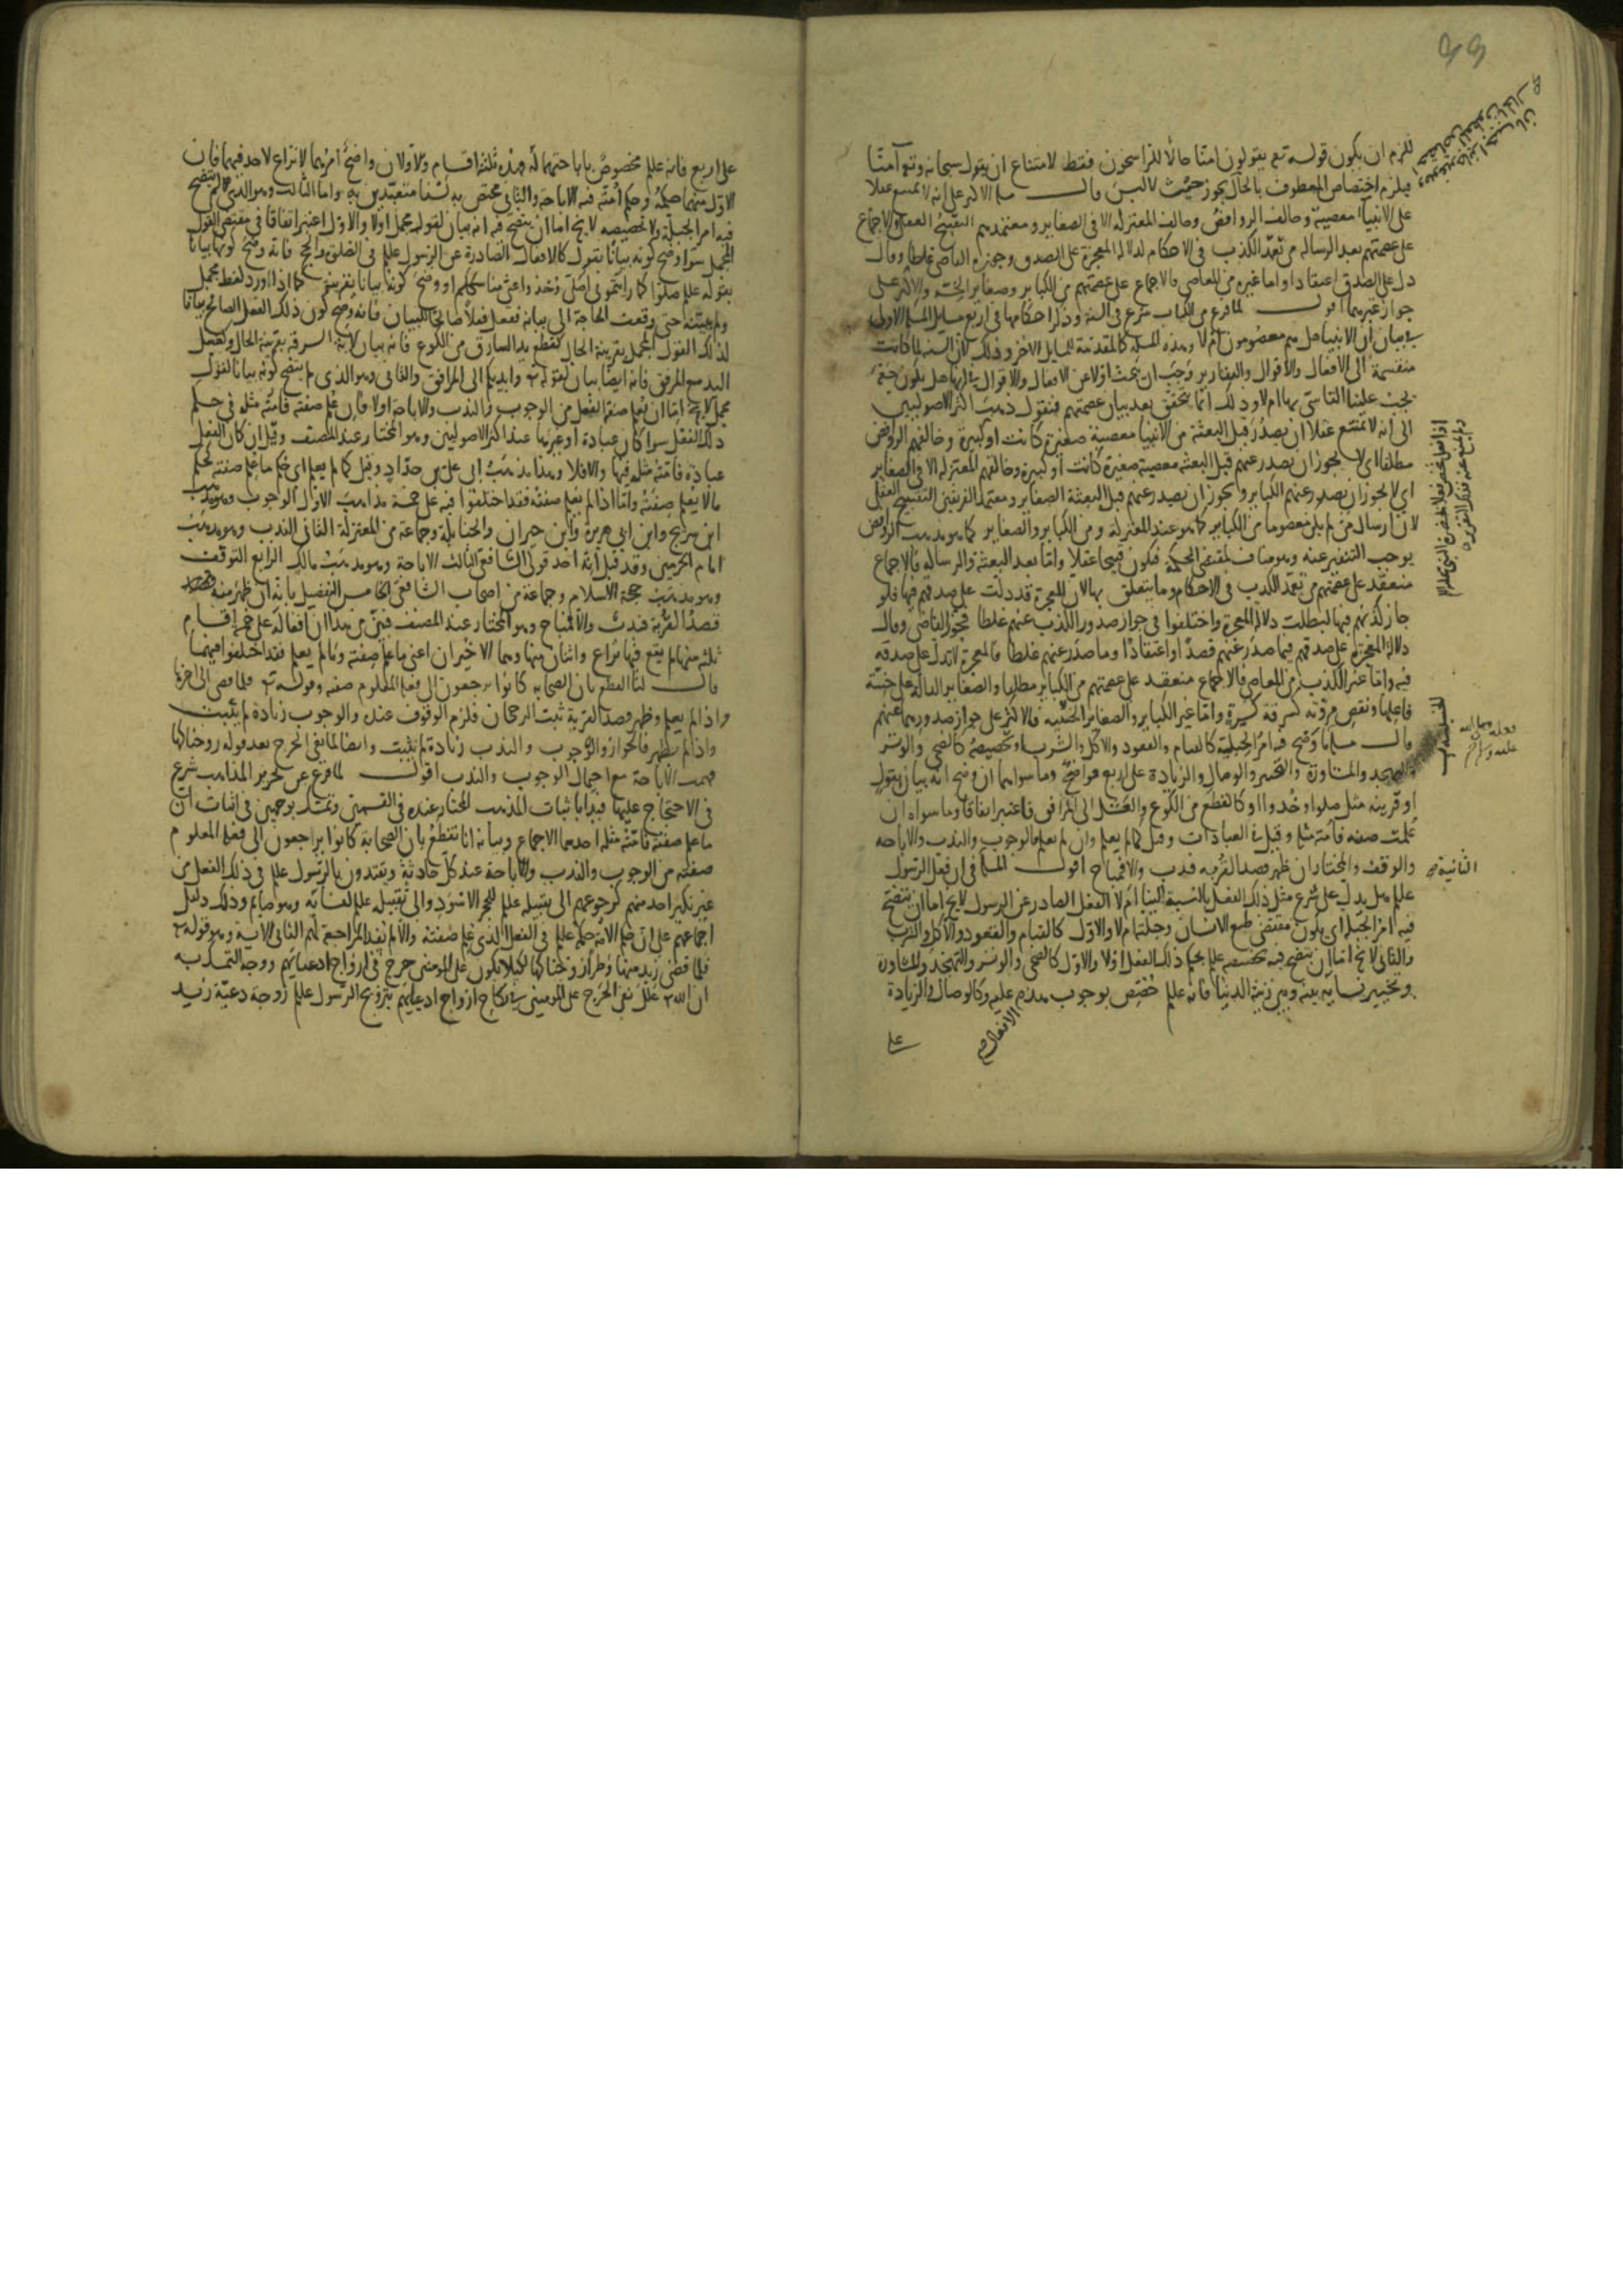 للزم ان يكون قوله تع يقولون امنا حالا للراسخون فقط لامتناع ان يقول سبحانه وتع آمنا
فيلزم اختصاص المعطوف بالحال يجوز حيث لا لبس قال مسلة الاكثر على انه لا يمتنع عقلا
على الانبيا معصية وخالف الروافض وخالف المعتزلة الا في الصغاير ومعتمدهم التقبيح العقلي والاجماع
على عصمتهم بعد الرسالة من تعمد الكذب في الاحكام لدلالة المعجزة على الصدق وجوزه القاضي غلطا وقال
دل على الصدق اعتقادا واما غيره من المعاصي فالاجماع على عصمتهم من الكباير وصغاير الخسة والاكثر على
جواز غيرهما اقول لما فرغ من الكتاب شرع في السنة وذكر احكامها في اربع مسايل المسلة الاولى
في بيان ان الانبيا هل هم معصومون ام لا وهذه المسلة كالمقدمة للمسايل الاخر وذلك لان السنة لما كانت
منقسمة الى الافعال والاقوال والتقارير وجب ان يبحث اولا عن الافعال والاقوال بانها هل يكون حجة
يجب علينا التاسي بها ام لا وذلك انما يتحقق بعد بيان عصمتهم فنقول ذهب اكثر الاصوليين
الى انه لا يمتنع عقلا ان يصدر قبل البعثة من الانبيا معصية صغيرة كانت او كبيرة وخالفهم الروافض
مطلقا اي لا يجوز ان يصدر عنهم قبل البعثة معصية صغيرة كانت او كبيرة وخالفهم المعتزلة الا في الصغاير
اي لا يجوز ان يصدر عنهم الكباير ويجوز ان يصدر عنهم قبل البعثة الصغاير ومعتمد الفريقين التقبيح العقلي
لان ارسال من لم يكن معصوما من الكباير كما هو عند المعتزلة ومن الكباير والصغاير كما هو مذهب الروافض
يوجب التنفير عنه وهو مناف لمقتضى الحكمة فيكون قبيحا عقلا واما بعد البعثة والرسالة فالاجماع
منعقد على عصمتهم من تعمد الكذب في الاحكام وما يتعلق بها لان المعجزة قد دلت على صدقهم فيها فلو
جاز كذبهم فيها لبطلت دلالة المعجزة واختلفوا في جواز صدور الكذب عنهم غلطا فجوز القاضي وقال
دلالة المعجزة على صدقهم فيما صدر عنهم قصدا او اعتقادا وما صدر عنهم غلطا فالمعجزة لا تدل على صدقه
فيه واما غير الكذب من المعاصي فالاجماع منعقد على عصمتهم من الكباير مطلقا والصغاير الدالة على خسة
فاعلها ونقص مروته كسرقة كسرة واما غير الكباير والصغاير الخسيسة فالاكثر على جواز صدورهما عنهم
قال مسلة ما وضح فيه امر الجبلة كالقيام والقعود والاكل والشرب او تخصيصه كالضحى والوتر
والتهجد والمشاورة والتخيير والوصال والزيادة على اربع فواضح وما سواهما ان وضح انه بيان بقول
او قرينة مثل صلوا وخذوا او كالقطع من الكوع والغسل الى المرافق فاعتبر اتفاقا وما سواه ان
علمت صفته فامته مثله وقيل في العبادات وقيل كما لم يعلم وان لم تعلم فالوجوب والندب والاباحة
والوقف والمختار ان ظهر قصد القربة فندب والا فمباح اقول المسلة الثانية في ان فعل الرسول
علم هل يدل على شرع مثل ذلك الفعل بالنسبة الينا ام لا الفعل الصادر عن الرسول لا يخ اما ان يتضح
فيه امر الجبلة اي يكون مقتضى طبع الانسان وجبلته ام لا والاول كالقيام والقعود والاكل والشرب
والثاني لا يخ اما ان يتضح فيه تخصيصه علم بحكم ذلك الفعل اولا والاول كالضحى والوتر والتهجد والمشاورة
وتخيير نسايه بينه وبين زينة الدنيا فانه علم خصص بوجوب هذه الافعال عليه وكالوصال والزيادة
على
على اربع فانه علم مخصوص باباحتهما له فهذه ثلثة اقسام والاولان واضح امرهما لا نزاع لاحد فيهما فان
الاول منهما حكمه وحكم امته فيه الاباحة والثاني مختص به لسنا متعبدين به واما الثالث وهو الذي لم يتضح
فيه امر الجبلة ولا تخصيصه لا يخ اما ان يتضح فيه انه بيان لقوله مجمل اولا والاول اعتبر اتفاقا في مقتضى القول
المجمل سوا وضح كونه بيانا بقول كالافعال الصادرة عن الرسول علم في الصلوة والحج فانه وضح كونها بيانا
بقوله علم صلوا كما رايتموني اصلي وخذوا عني مناسككم او وضح كونها بيانا بقرينة كما اذا ورد لفظ مجمل
ولم يبينه حتى وقعت الحاجة الى بيانه ففعل فعلا صالحا للبيان فانه وضح كون ذلك الفعل الصالح بيانا
لذلك القول المجمل بقرينة الحال كقطع يد السارق من الكوع فانه بيان لاية السرقة بقرينة الحال وكغسل
اليد مع المرفق فانه ايضا بيان لقوله تع وايديكم الى المرافق والثاني وهو الذي لم يتضح كونه بيانا لقول
مجمل لا يخ اما ان يعلم صفة الفعل من الوجوب والندب والاباحة اولا فان علم صفته فامته مثله في حكم
ذلك الفعل سوا كان عبادة او غيرها عند اكثر الاصوليين وهو المختار عند المصنف وقيل ان كان الفعل
عبادة فامته مثله فيها والا فلا وهذا مذهب ابي علي بن خلاد وقيل كما لم يعلم اي حكم ما علم صفته كحكم
ما لا يعلم صفته واما اذا لم يعلم صفته فقد اختلفوا فيه على خمسة مذاهب الاول الوجوب وهو مذهب
ابن سريج وابن ابي هريرة وابن خيران والحنابلة وجماعة من المعتزلة الثاني الندب وهو مذهب
امام الحرمين وقد قيل انه احد قولي الشافعي الثالث الاباحة وهو مذهب مالك الرابع التوقف
وهو مذهب حجة الاسلام وجماعة من اصحاب الشافعي الخامس التفصيل بانه ان ظهر منه
قصد القربة فندب والا فمباح وهو المختار عند المصنف فتبين من هذا ان افعاله على خمسة اقسام
ثلثة منها لم يقع فيها نزاع واثنان منها وهما الاخيران اعني ما علم صفته وما لم يعلم فقد اختلفوا فيهما
قال لنا القطع بان الصحابة كانوا يرجعون الى فعله المعلوم صفته وقوله تع فلما قضى الى اخرها
واذا لم يعلم وظهر قصد القربة ثبت الرجحان فلزم الوقوف عنده والوجوب زيادة لم يثبت
واذا لم يظهر فالجواز والوجوب والندب زيادة لم يثبت وايضا لما نفي الحرج بعد قوله زوجناكها
فهمت الاباحة مع احتمال الوجوب والندب اقول لما فرغ عن تحرير المذاهب شرع
في الاحتجاج عليها فبدا باثبات المذهب المختار عنده في القسمين وتمسك بوجهين في اثبات ان
ما علم صفته فامته مثله احدهما الاجماع وبيانه انا نقطع بان الصحابة كانوا يراجعون الى فعله المعلوم
صفته من الوجوب والندب والاباحة عند كل حادثة ويقتدون بالرسول علم في ذلك الفعل من
غير نكير احد منهم كرجوعهم الى تقبيله علم للحجر الاسود والى تقبيله علم لنسائه وهو صايم وذلك دليل
اجماعهم على ان حكم الامة حكمه علم في الفعل الذي علم صفته والا لم يفد المراجعة لهم الثاني الاية وهو قوله تع
فلما قضى زيد منها وطرا زوجناكها لكيلا يكون على المومنين حرج في ازواج ادعيائهم ووجه التمسك به
ان الله تع علل نفي الحرج على المومنين في نكاح ازواج ادعيائهم بتزويج الرسول علم زوجة دعيه زيد